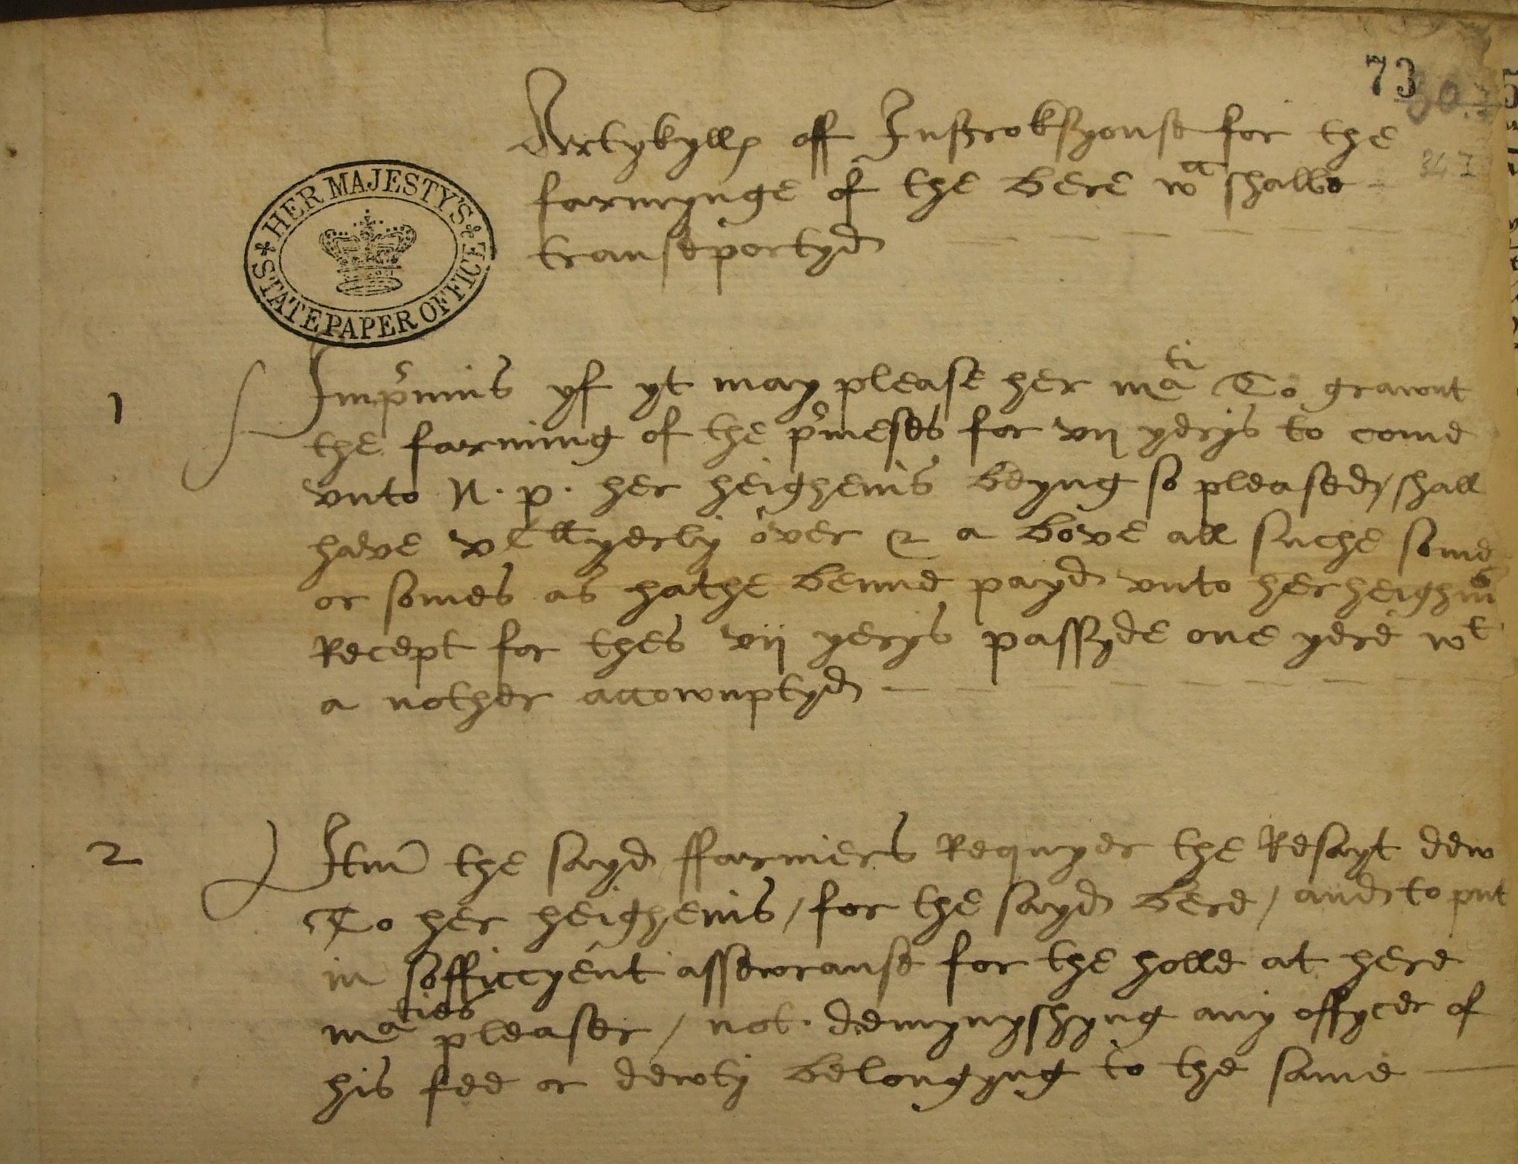 73
Artykylles off Instroksyonse for the
farmynge of the bere wch shalbe
transeportyd
HER MAJESTY'S
STATE PAPER OFFICE
1 Imprimis yf yt may please her mati To grawnt
the farming of the pmeses for vii yerys to come
vnto N. p. her heighenis beyng so pleased / shall
have xl ll yerly over & a bove all suche some
or somes as hathe benne payd vnto her heighnis
Recept for thes vii yerys passyde one yere wt
a nother accownptyd
2 Itm the sayd ffarmers Requyer the Resayt dew
To her heighenis / for the sayd bere / and to put
in sofficcyent assewranse for the holle at here
maties pleaser / not demynyshyng any offycer of
his fee or dewty belongyng to the same